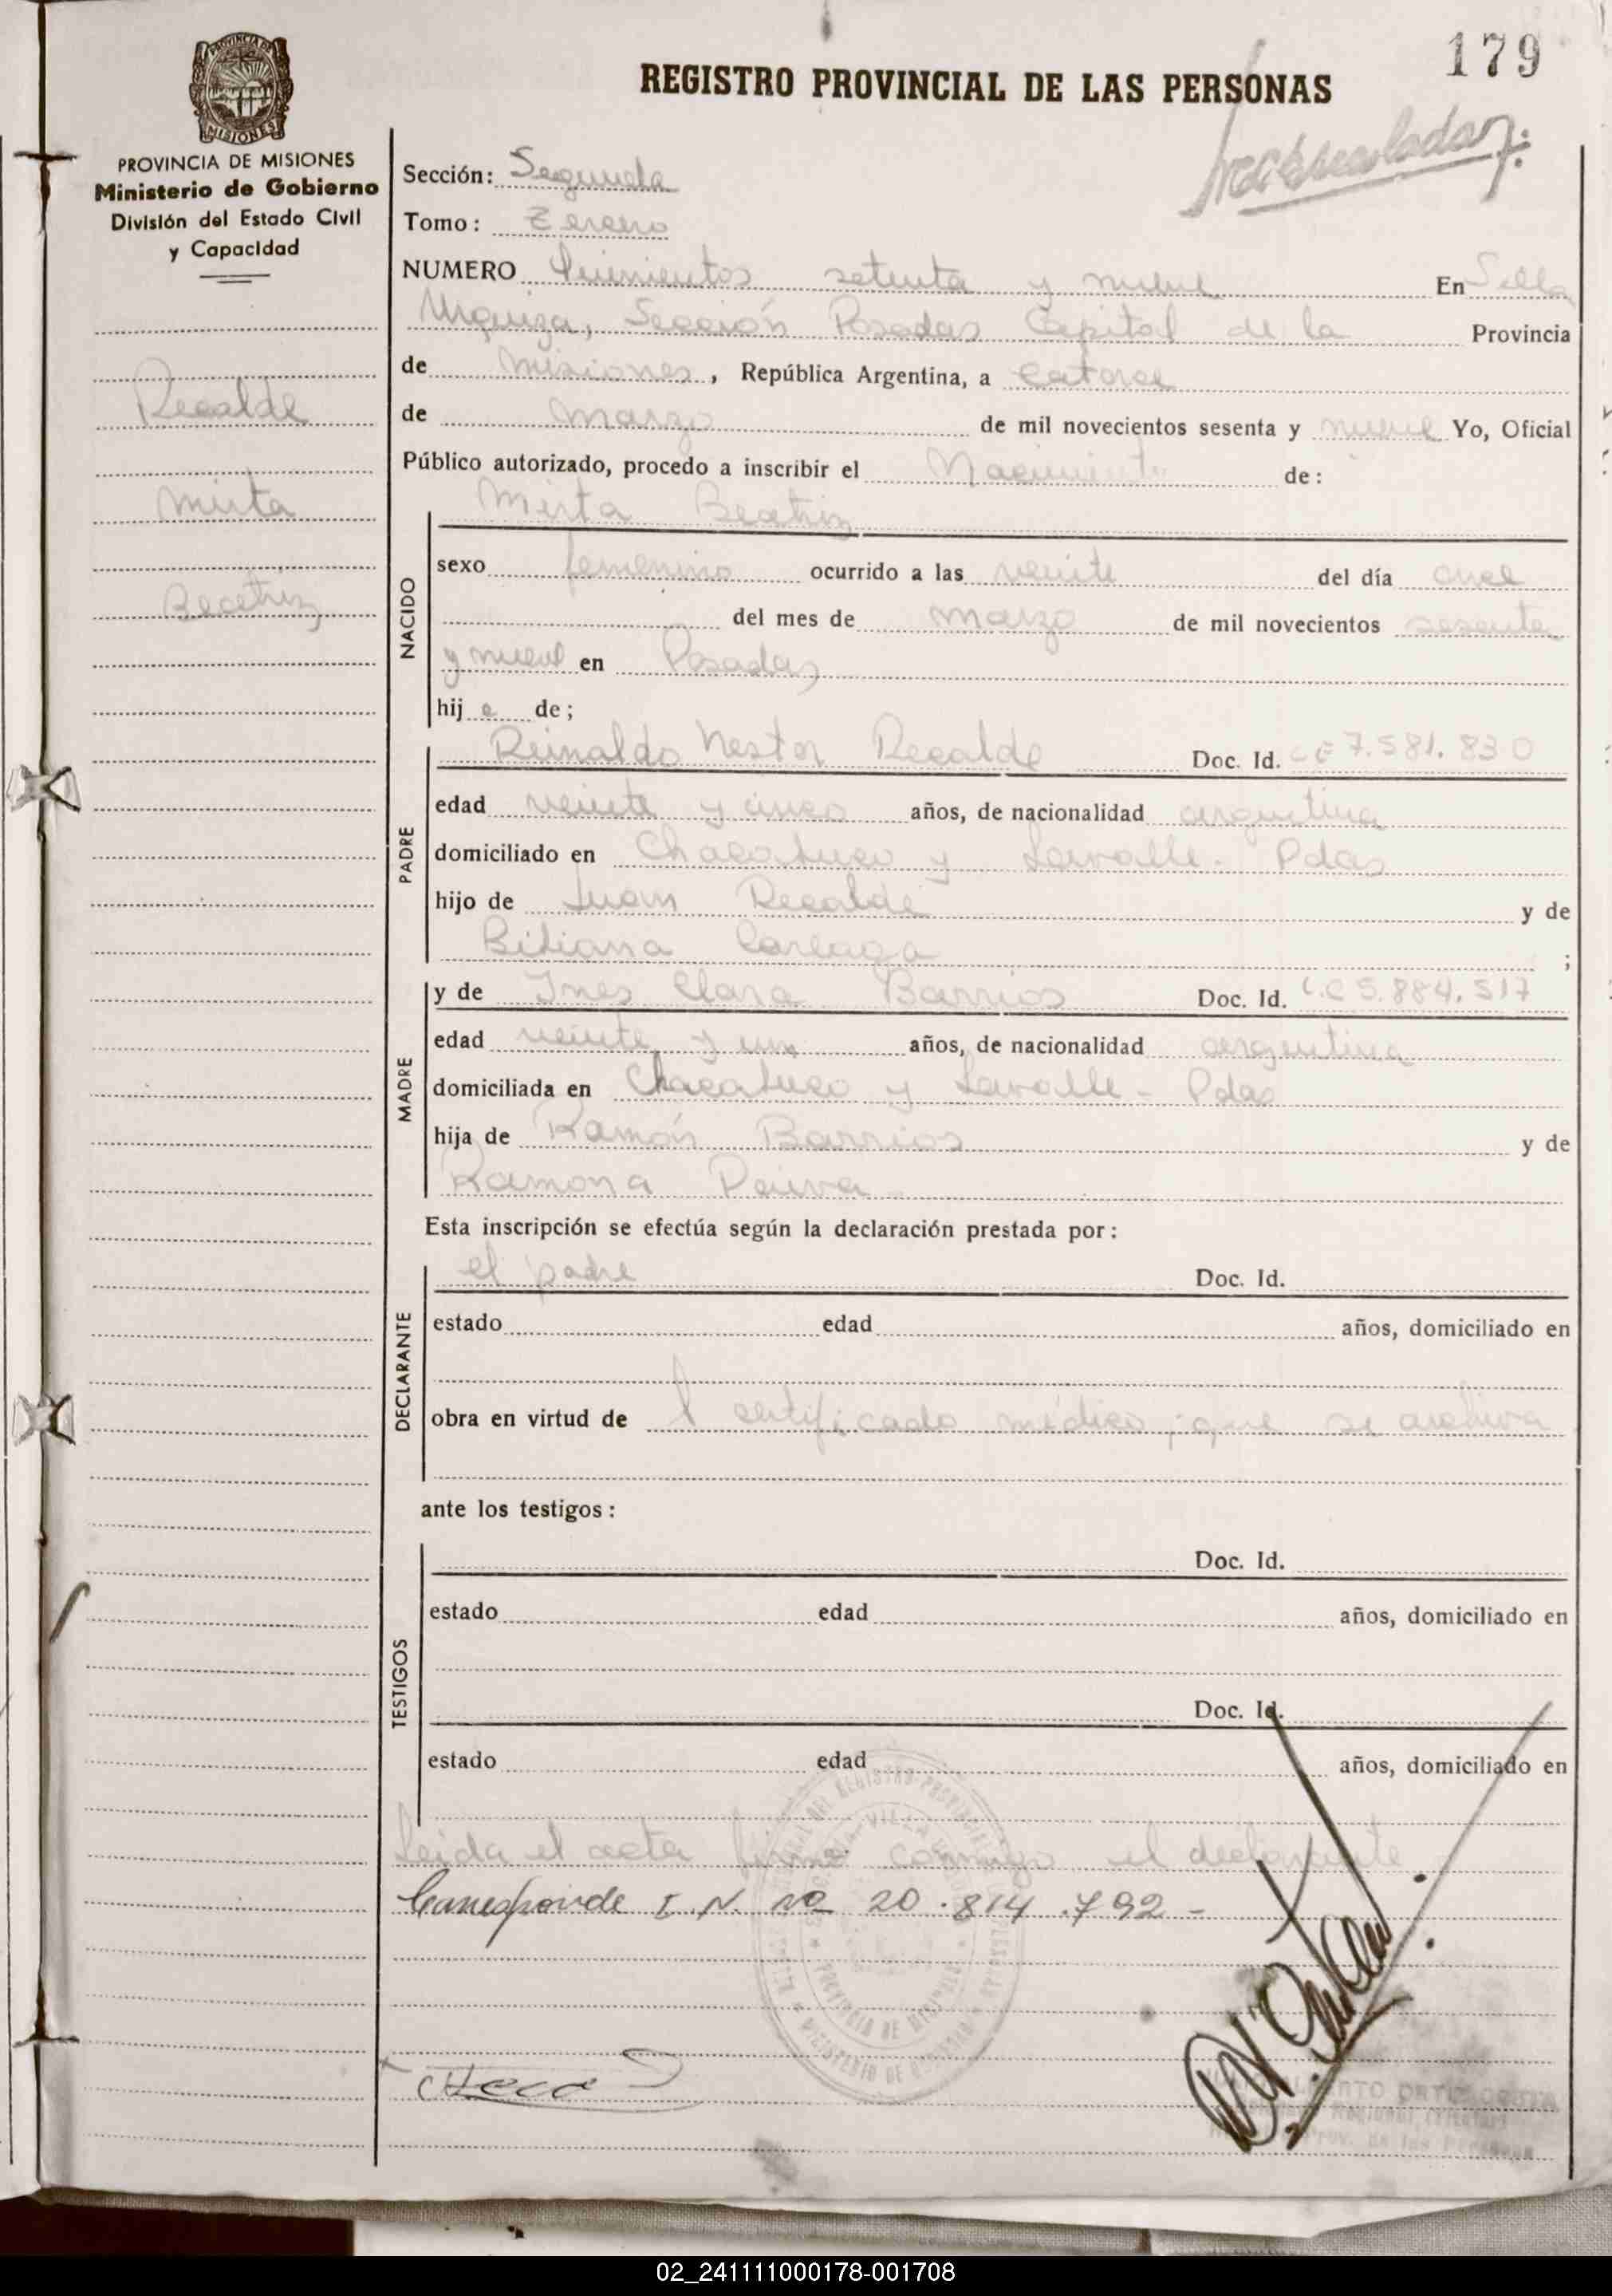 179
REGISTRO PROVINCIAL DE LAS PERSONAS
PROVINCIA DE MISIONES
MISIONES
PROVINCIA DE MISIONES
Ministerio de Gobierno
División del Estado Civil
y Capacidad
Recalde
Mirta
Beatriz
Sección: Segunda
Tomo: Tercero
NUMERO Quinientos setenta y nueve En Villa
Urquiza, Sección Posadas Capital de la Provincia
de Misiones, República Argentina, a catorce
de marzo de mil novecientos sesenta y nueve Yo, Oficial
Público autorizado, procedo a inscribir el Nacimiento de:
Mirta Beatriz
NACIDO
sexo femenino ocurrido a las veinte del día once
del mes de marzo de mil novecientos sesenta
y nueve en Posadas
hij a de;
PADRE
Reinaldo Nestor Recalde Doc. Id. 7.581.830
edad veinte y cinco años, de nacionalidad argentina
domiciliado en Chacabuco y Lavalle. Pdas
hijo de Juan Recalde y de
Bibiana Careaga ;
MADRE
y de Ines Clara Barrios Doc. Id. L.C 5.884.517
edad veinte y un años, de nacionalidad argentina
domiciliada en Chacabuco y Lavalle - Pdas
hija de Ramón Barrios y de
Ramona Paiva
Esta inscripción se efectúa según la declaración prestada por:
DECLARANTE
el padre Doc. Id.
estado edad años, domiciliado en
obra en virtud de l certificado médico, que se archiva
ante los testigos:
TESTIGOS
Doc. Id.
estado edad años, domiciliado en
Doc. Id.
estado edad años, domiciliado en
Leida el acta firma conmigo el declarante
Corresponde I. N. Nº 20.814.792 -
PROVINCIA DE MISIONES
02_241111000178-001708